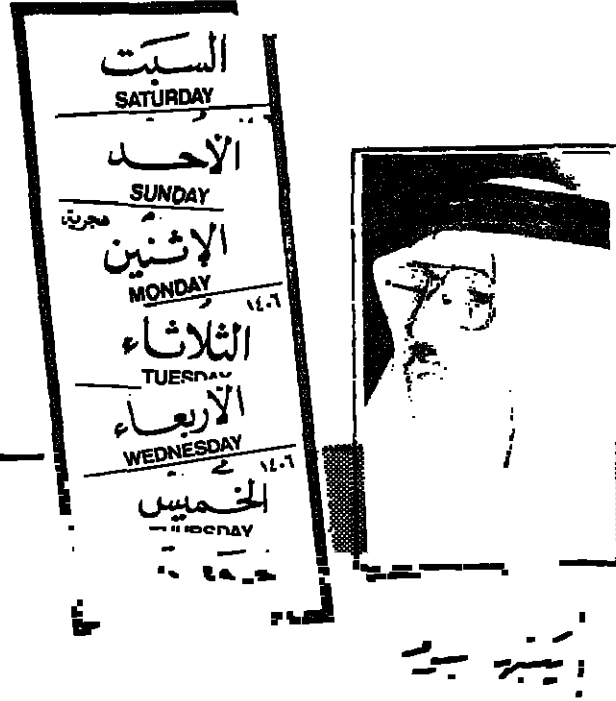 السبت
SATURDAY
الأحد
SUNDAY
هجرية
الإثنين
MONDAY
١٤٠٦
الثلاثاء
TUESDAY
الأربعاء
WEDNESDAY
١٤٠٦
الخميس
THURSDAY